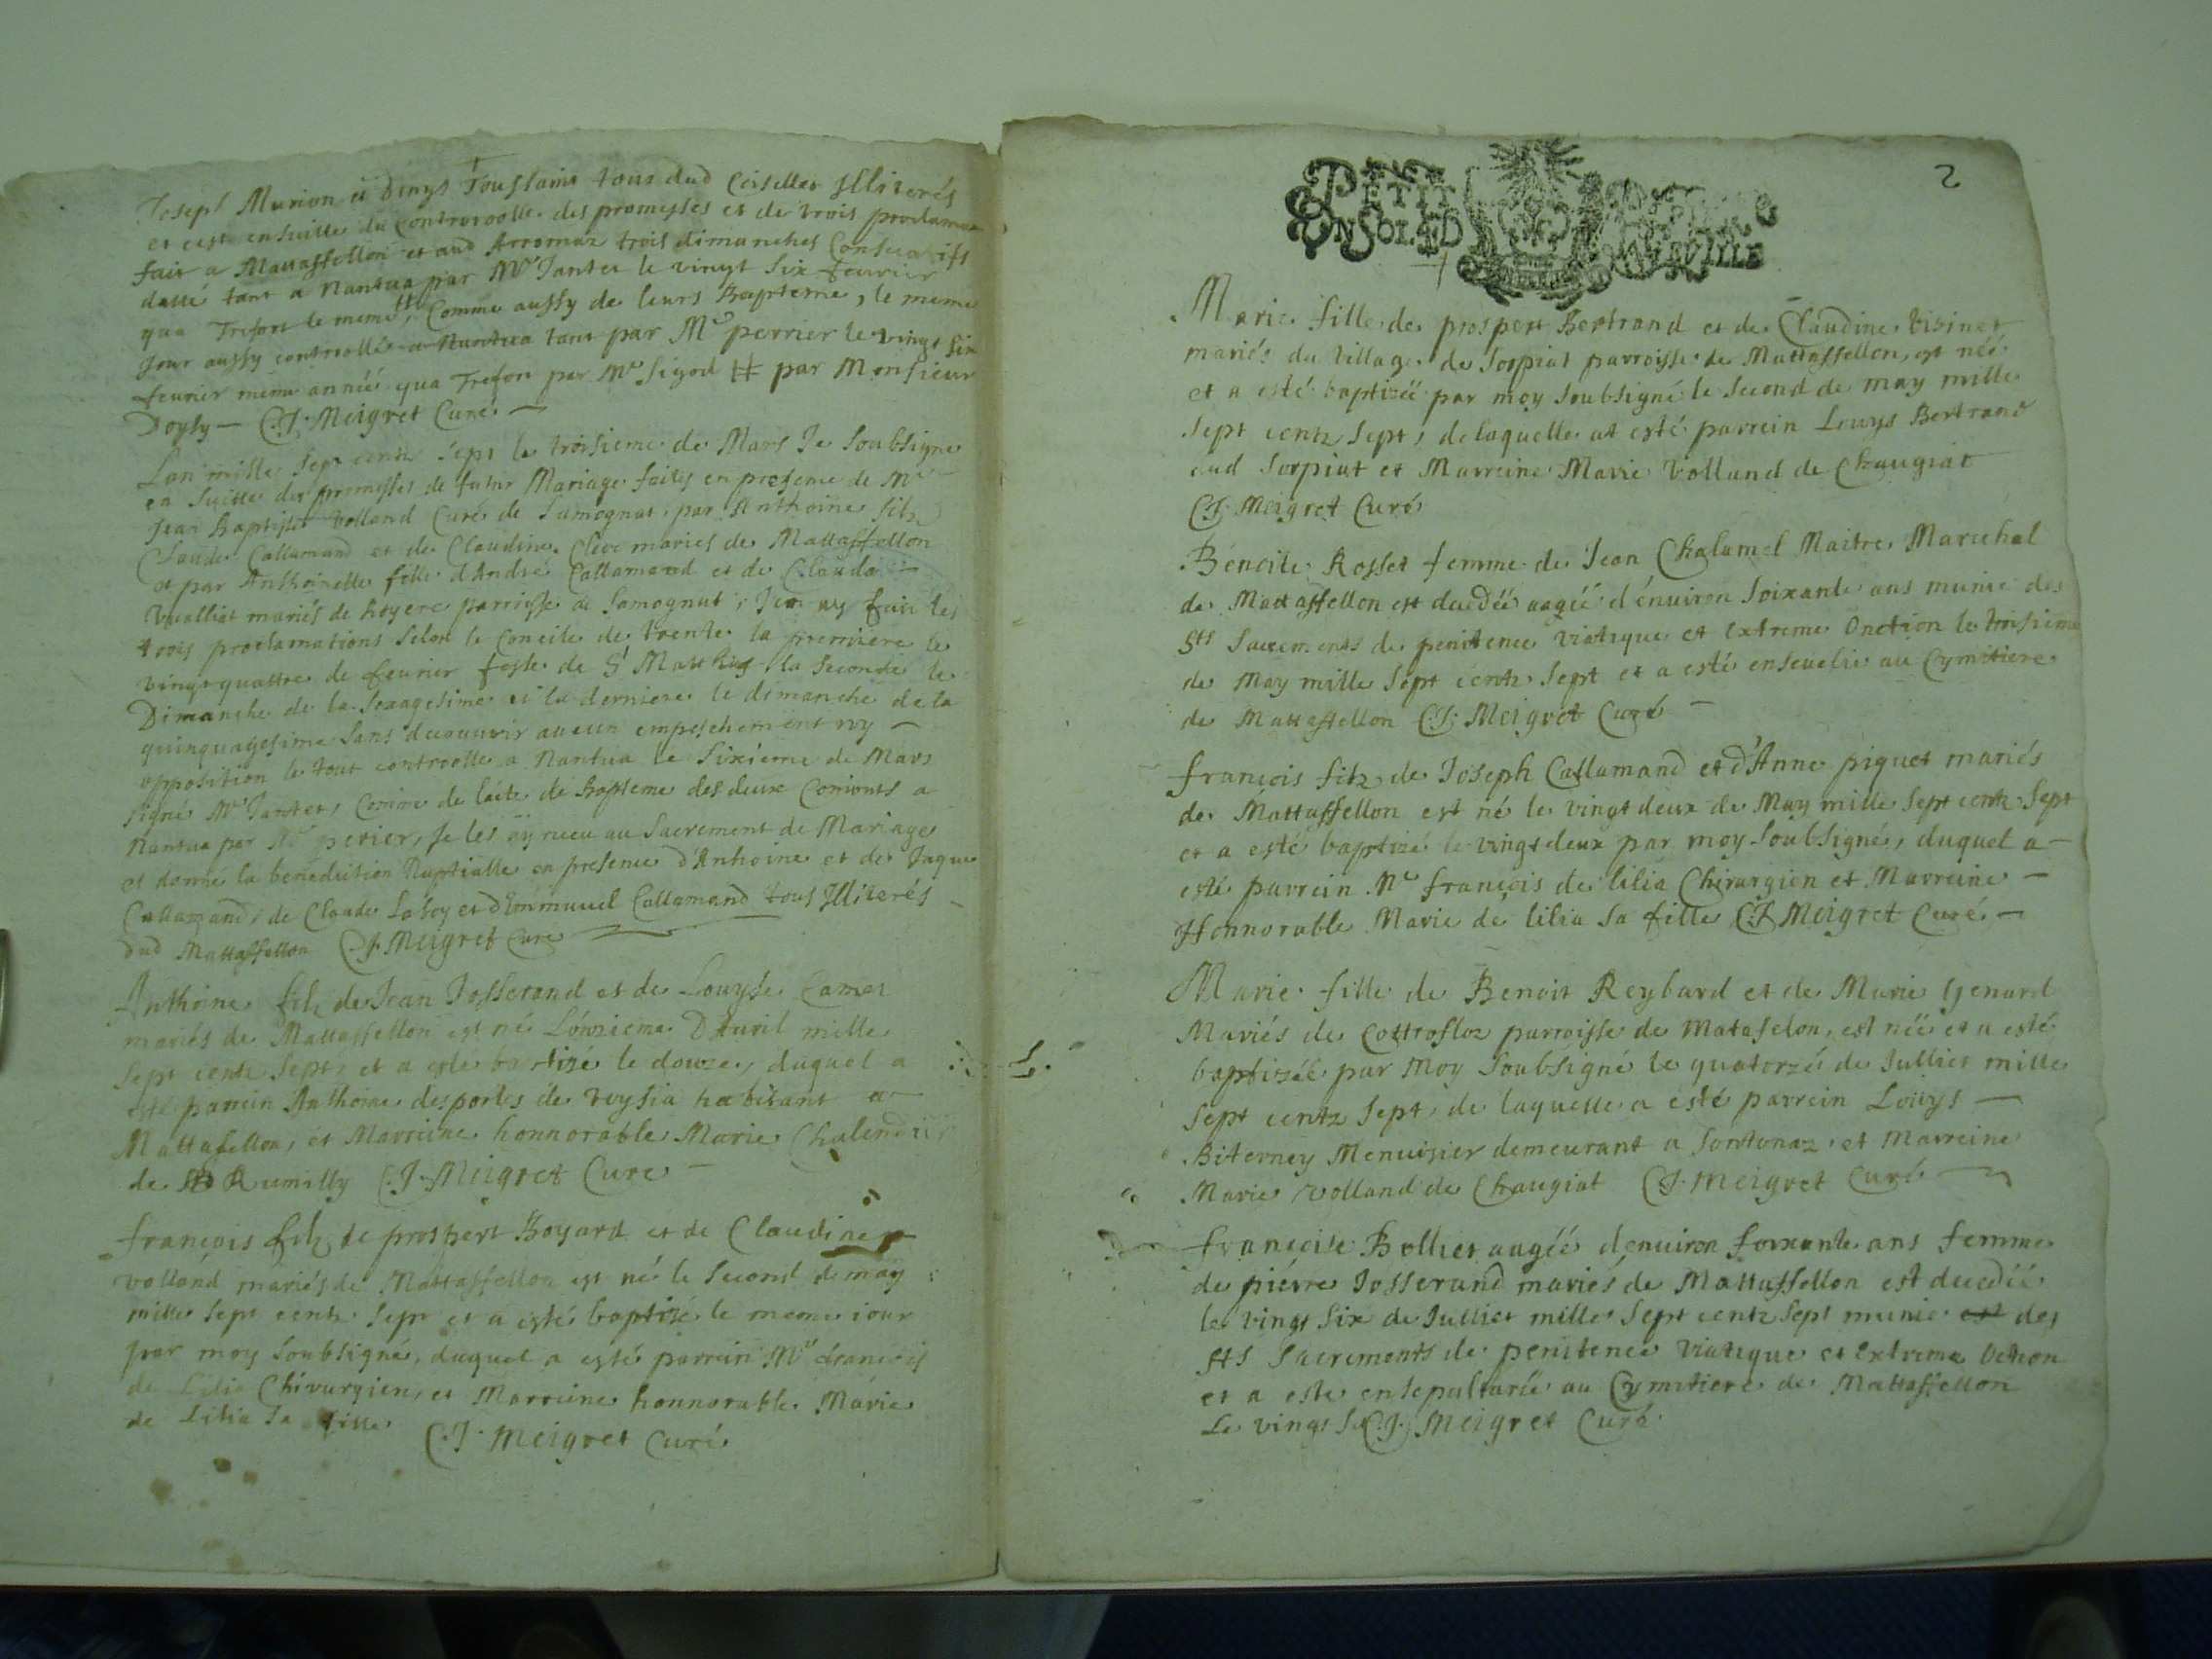 Joseph Murion et Dinys Toussaint tous dud Ceiselles Jlliterés
et cest ensuitte du Controroolle des promesses et de trois proclama
fait a Mattaffellon et aud Arromaz trois dimanches Consecutifs
datté tant a Nantua par Mr Jantet le vingt Six feurier
qua Trefort le meme # Comme aussy de leurs Bapteme, le meme
Jour aussy controollé a Nantua tant par Me perrier le vingt six
feurier meme année qua Trefort par Me Sigod # par Monsieur
Doysy — C.J. Meigret Curé —
Lan mille Sept centz sept le troisieme de Mars Je Soubsigné
en Suitte des promesses de futur Mariage faites en presence de Mre
Jean Baptiste Volland Curé de Samognat par Anthoine filz
Claude Callamand et de Claudine Cleve mariés de Mattaffellon
et par Anthoinette fille d'André Callamand et de Clauda —
Vualliat mariés de Royere parroisse de Samognat, Jen ay fait les
trois proclamations Selon le Concile de trente la premiere le
vingt quattre de feurier feste de St Matthieu la Seconde le
Dimanche de la Sexagesime et la derniere le dimanche de la
quinquagesime Sans decouurir aucun empeschement ny —
opposition le tout controolle a Nantua le Sixieme de Mars
signé Mr Jantet, Comme de l'acte de Bapteme des deux Conionts a
Nantua par Me perier, Je les ay receu au Sacrement de Mariage
et donné la benediction Nuptialle en presence d'Anthoine et de Jaque
Callamand, de Claude Lassoy et d'Emmanuel Callamand tous Jlliterés —
dud Mattaffellon C.J. Meigret Curé
Anthoine filz de Jean Josserand et de Louyse Camet
mariés de Mattaffellon est né L'onzieme D'Auril mille
Sept centz Sept, et a esté baptizé le douze, duquel a
esté parrein Anthoine desportes de Veysia habitant a
Mattafellon, et Marreine honnorable Marie Chalendrir
de Rumilly C.J. Meigret Curé —
françois filz de prospert Boyard et de Claudine
volland mariés de Mattaffellon est né le Second de may
mille Sept centz Sept et a esté baptizé le meme iour
par moy Soubsigné, duquel a esté parrein Me françois
de Lilia Chirurgien, et Marreine honnorable Marie
de Lilia Sa fille C.J. Meigret Curé
2
PETIT
EN SOL
Marie fille de prospert Bertrand et de Claudine Visinet
mariés du Village de Sorpiat parroisse de Mattaffellon, est néé
et a esté baptizéé par moy Soubsigné le Second de may mille
Sept centz Sept, de laquelle at esté parrein Louys Bertrand
dud Sorpiat et Marreine Marie Volland de Chaugiat
C.J. Meigret Curé
Benoite Rosset femme de Jean Chalumel Maitre Marechal
de Mattaffellon est decedéé aagéé d'enuiron Soixante ans munie des
Sts Sacements de penitence viatique et Extreme Onction le troisieme
de May mille Sept centz Sept et a esté enseuelie au Cymitiere
de Mattaffellon C.J. Meigret Curé —
françois filz de Joseph Callamand et d'Anne piquet mariés
de Mattaffellon est né le vingt deux de May mille Sept centz Sept
et a esté baptizé le vingt deux par moy Soubsigné, duquel a —
esté parrein Me françois de lilia Chirurgien et Marreine —
Honnorable Marie de lilia Sa fille C.J. Meigret Curé —
Marie fille de Benoit Reybard et de Marie Genard
Mariés de Cottrofloz parroisse de Matafelon, est néé et a esté
baptizéé par Moy Soubsigné le quatorze de Julliet mille
Sept centz Sept, de laquelle a esté parrein Louys —
Biterney Menuisier demeurant a Sontonaz, et Marreine
Marie Volland de Chaugiat C.J. Meigret Curé
françoise Bolliet aagéé d'enuiron soixante ans femme
de piérre Josserand mariés de Mattaffellon est decedéé
le vingt Six de Julliet mille Sept centz Sept munie est des
Sts Sacrements de penitence Viatique et Extreme Oction
et a este ensepulturéé au Cymitiere de Mattaffellon
Le vingt Se C.J. Meigret Curé